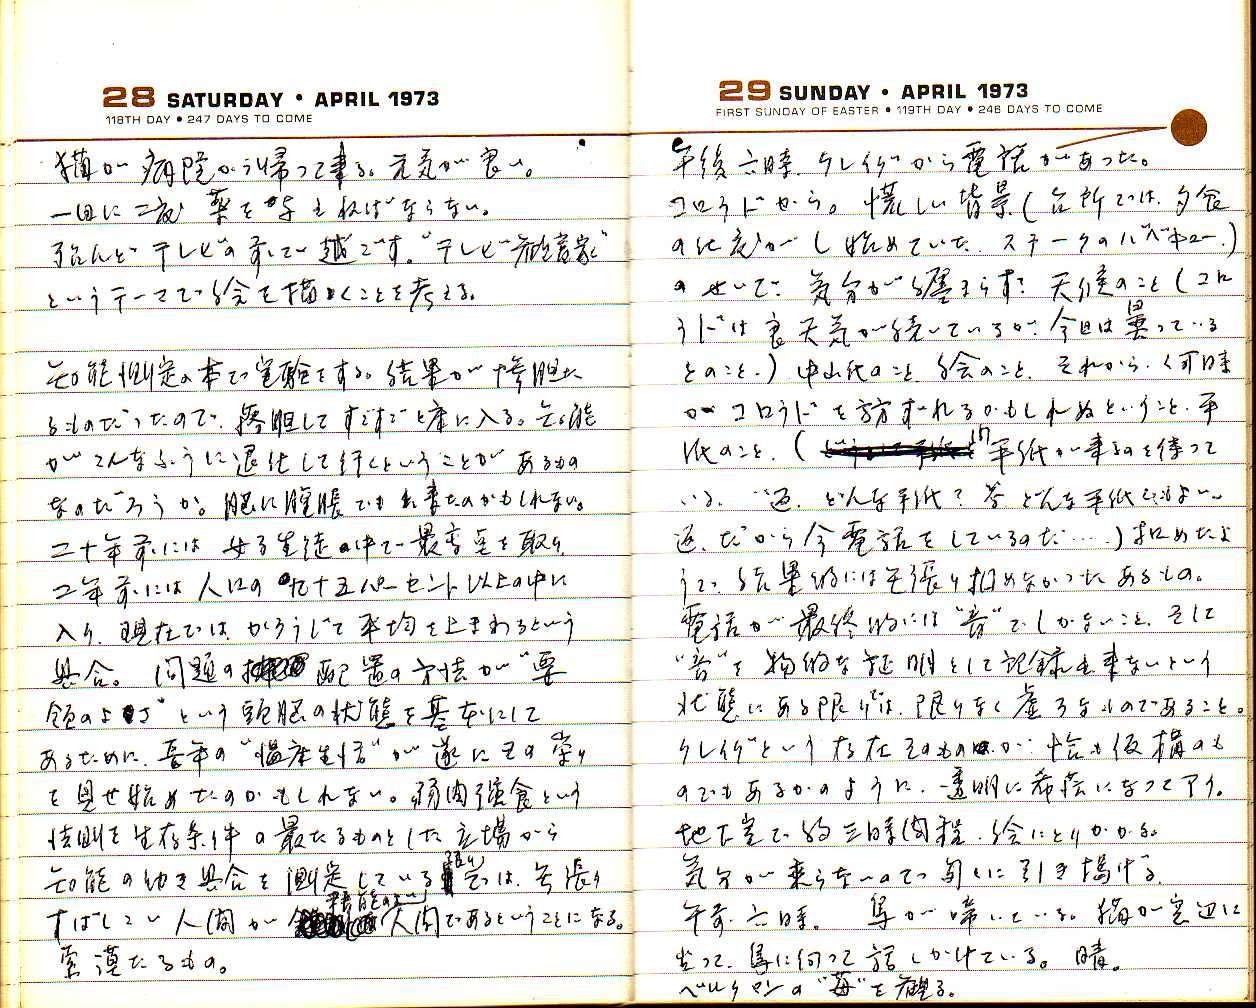 28 SATURDAY • APRIL 1973
118TH DAY • 247 DAYS TO COME
猫が病院から帰って来る。元気が良い。
一日に二度薬を与えねばならない。
殆んどテレビの前で越です。"テレビ
というテーマで絵を描くことを考える。
知能測定の本で実験をする。結果が惨胆た
るものだったので、落胆してすごすごと床に入る。知能
がこんなふうに退化して行くということがあるもの
なのだろうか。脳に腫脹でも出来たのかもしれない。
二十年前には女子生徒の中で最高点を取り、
二年前には人口の九十五パーセント以上の中に
入り、現在では、かろうじて平均を上まわるという
具合。問題の配置の方法が"要
領のよさ"という頭脳の状態を基本にして
あるために、吾平の"温床生活"が遂にその祟り
を見せ始めたのかもしれない。弱肉強食という
法則を生存条件の最たるものとした立場から
知能の働き具合を測定している限りでは、矢張り
すばしこい人間が有能のよい人間であるということになる。
索漠たるもの。
29 SUNDAY • APRIL 1973
FIRST SUNDAY OF EASTER • 119TH DAY • 246 DAYS TO COME
午後六時、クレイグから電話があった。
コロラドから。慌しい背景(台所では、夕食
の仕度がし始めていた、ステーキのバーベキュー。)
のせいで、気分が纏まらず、天候のこと(コロ
ラドは良天気が続いているが、今日は曇っている
とのこと。)中山氏のこと、絵のこと、それから、何時
かコロラドを訪ずれるかもしれぬということ、手
紙のこと、(手紙が来るのを待って
いる。返、どんな手紙? 答 どんな手紙でもよい。
返、だから今電話をしているのだ……)
うで、結果的には矢張り
電話が最終的には"音"でしかないこと、そして
"音"を物的な証明として記録出来ないという
状態にある限りでは、限りなく虚ろなものであること。
クレイグという存在そのものが、恰も仮構のも
のでもあるかのように、透明に希薄になってアリ。
地下室で約三時間程、絵にとりかかる。
気分が乗らないので匆々に引き揚げる。
午前六時。鳥が啼いている。猫が窓辺に
坐って、鳥に向って話しかけている。晴。
ベルイマンの"苺"を観る。